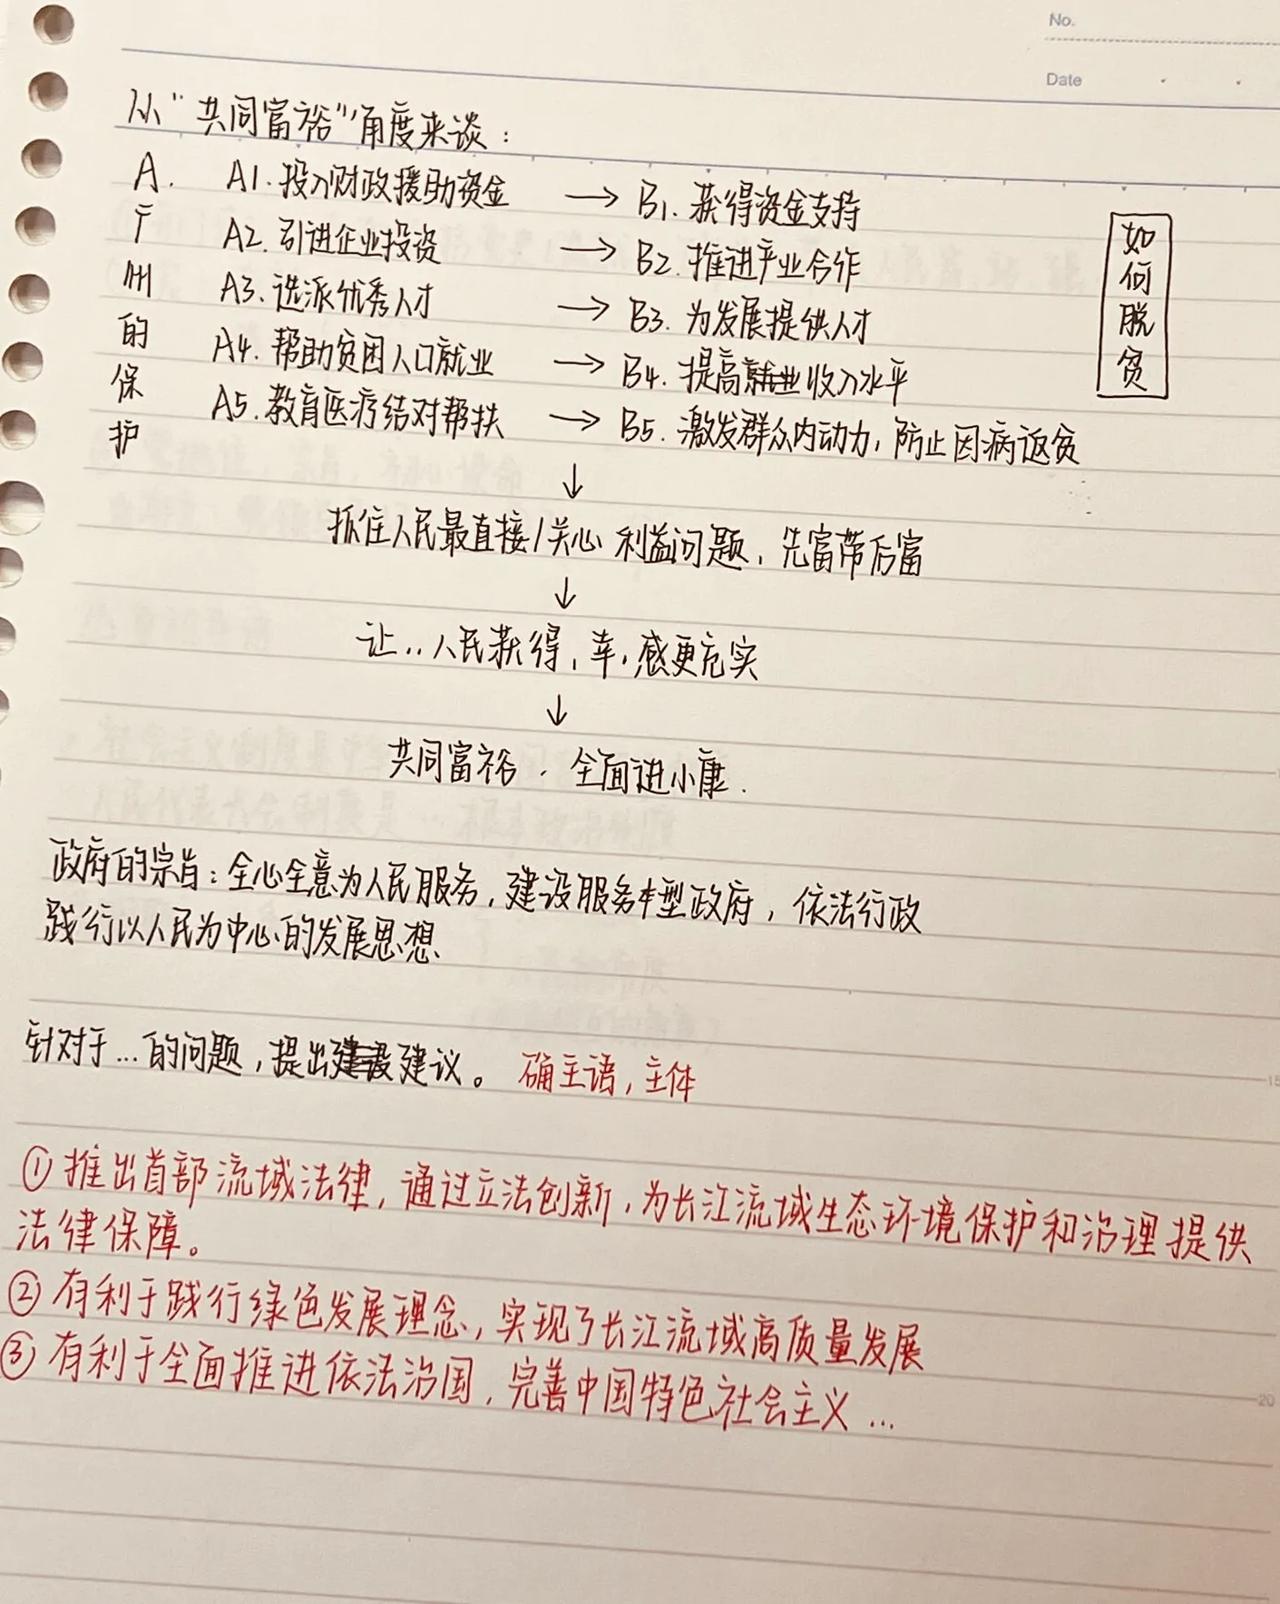 No.
Date
从“共同富裕”角度来谈：
A. 广州的保护
A1.投入财政援助资金 → B1.获得资金支持
A2.引进企业投资 → B2.推进产业合作
A3.选派优秀人才 → B3.为发展提供人才
A4.帮助贫困人口就业 → B4.提高收入水平
A5.教育医疗结对帮扶 → B5.激发群众内动力，防止因病返贫
如何脱贫
↓
抓住人民最直接/关心 利益问题，先富带后富
↓
让..人民获得、幸、感更充实
↓
共同富裕．全面进小康．
政府的宗旨：全心全意为人民服务，建设服务型政府，依法行政
践行以人民为中心的发展思想．
针对于…的问题，提出建议。 确主语，主体
①推出首部流域法律，通过立法创新，为长江流域生态环境保护和治理提供
法律保障。
②有利于践行绿色发展理念，实现了长江流域高质量发展
③有利于全面推进依法治国，完善中国特色社会主义…
15
20